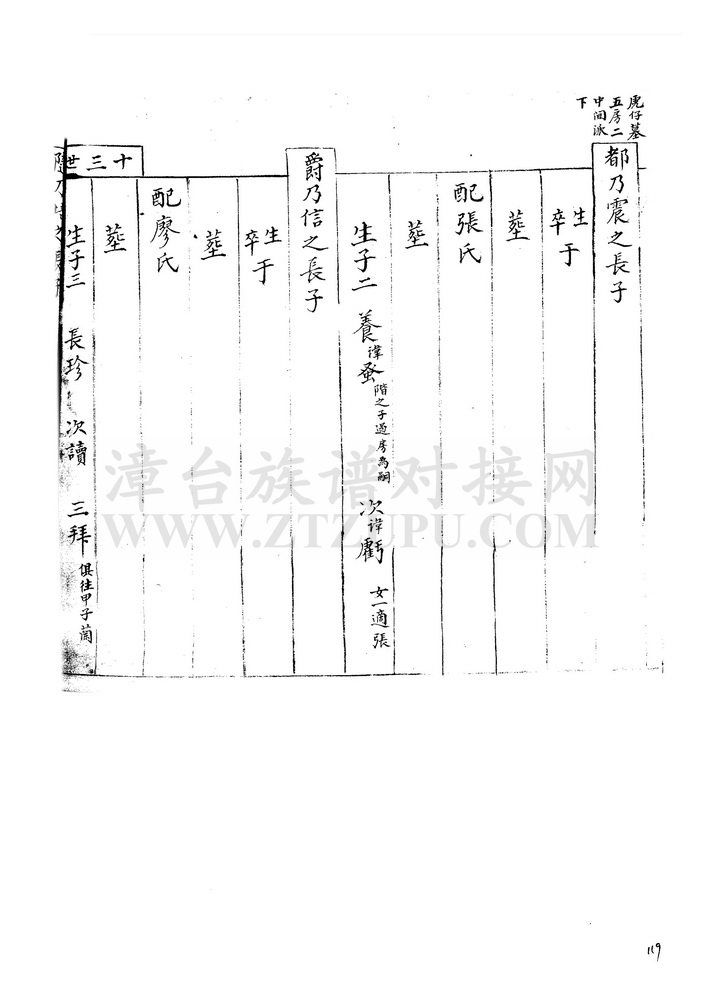 虎仔墓
五房二
中间派
下
都乃震之長子
生
卒于
塟
配張氏
塟
生子二 養諱蚤 階之子過房為嗣 次諱虧 女一適張
爵乃信之長子
生
卒于
塟
配廖氏
塟
十三世
生子三 長珍 次讀 三拜 俱往甲子蘭
漳台族谱对接网
WWW.ZTZUPU.COM
119